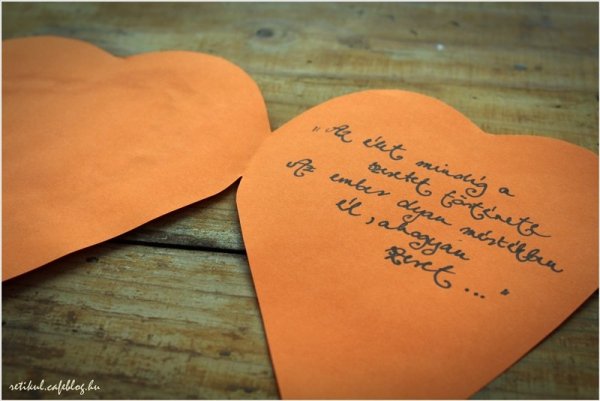 „Az élet mindig a
szeretet története
Az ember olyan mértékben
él, ahogyan
szeret ..."
retikul.cafeblog.hu